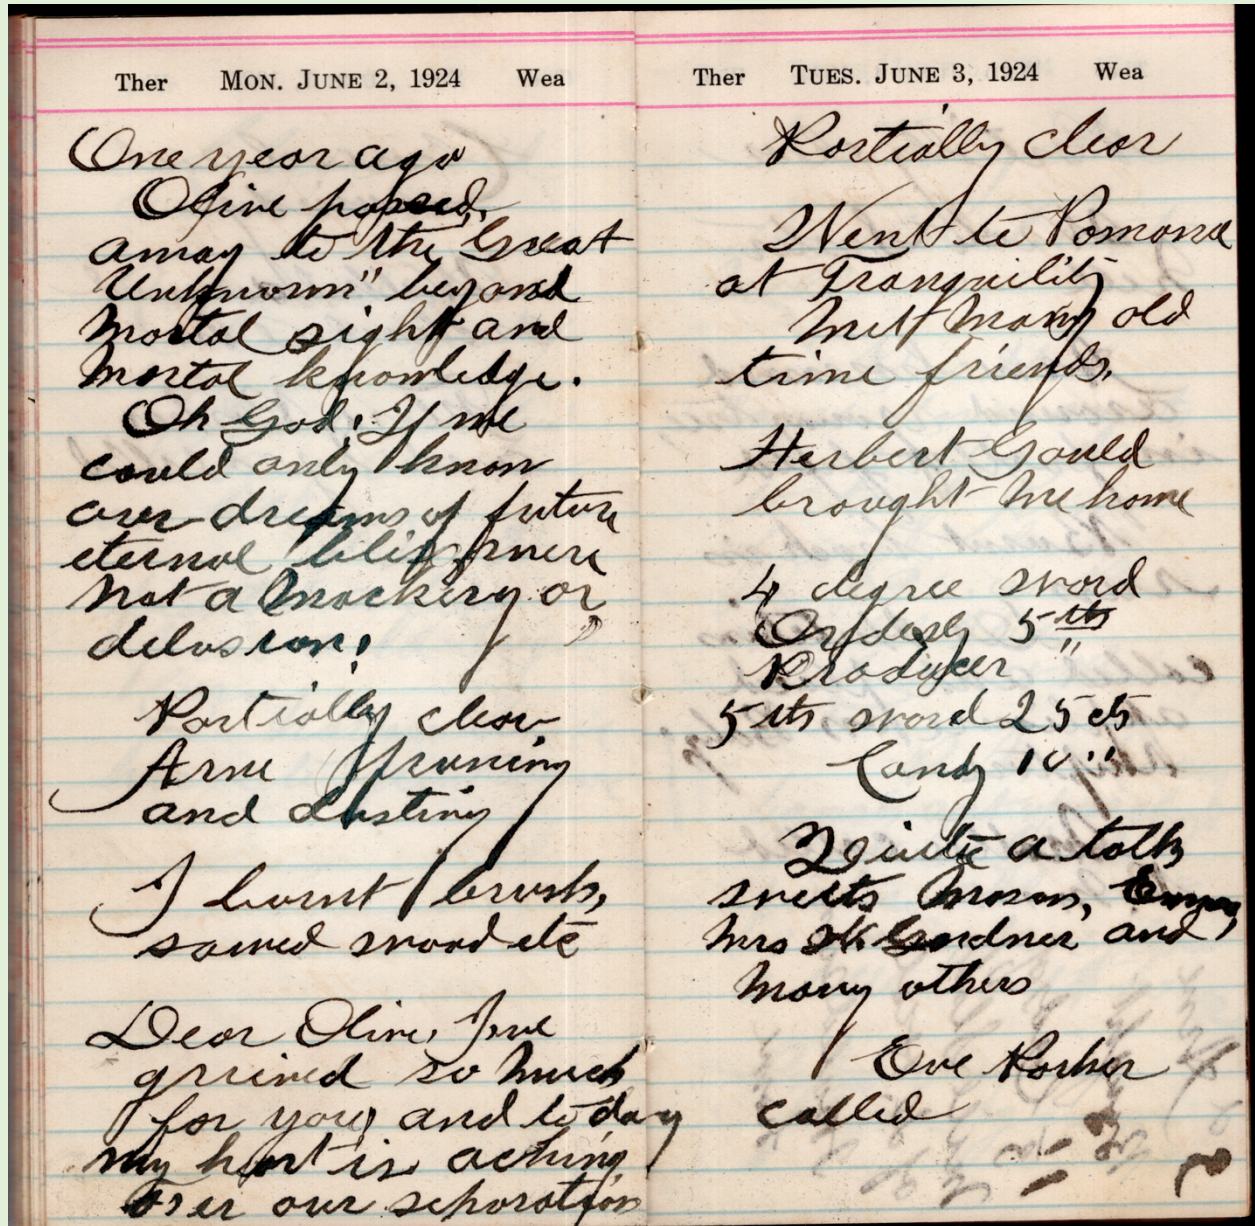 Ther MON. JUNE 2, 1924 Wea
One year ago
Olive passed
away to the "Great
Unknown" beyond
Mortal sight and
Mortal knowledge.
Oh God! If we
could only know
our dreams of future
eternal life were
not a mockery or
delusion!
Partially clear
Arne Pruning
and dusting
I burnt brush,
sawed wood etc
Dear Olive, I've
grieved so much
for you, and today
my heart is aching
over our separation
Ther TUES. JUNE 3, 1924 Wea
Partially clear
Went to Pomona
at Tranquility
Met Many old
time friends,
Herbert Gould
brought me home
4 degree word
5th
Producer "
5th word 25 cts
Candy 10 "
Quite a talk
with Mason,
Mrs Gardner and
Many others
Eve Parker
called